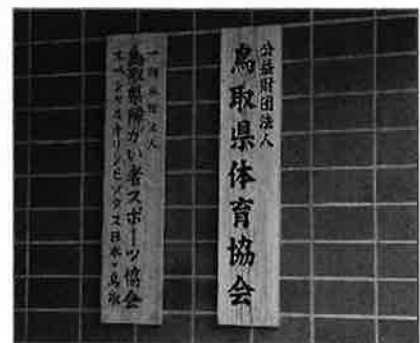 公益財団法人
鳥取県体育協会
一般社団法人
鳥取県障がい者スポーツ協会
スペシャルオリンピックス日本・鳥取